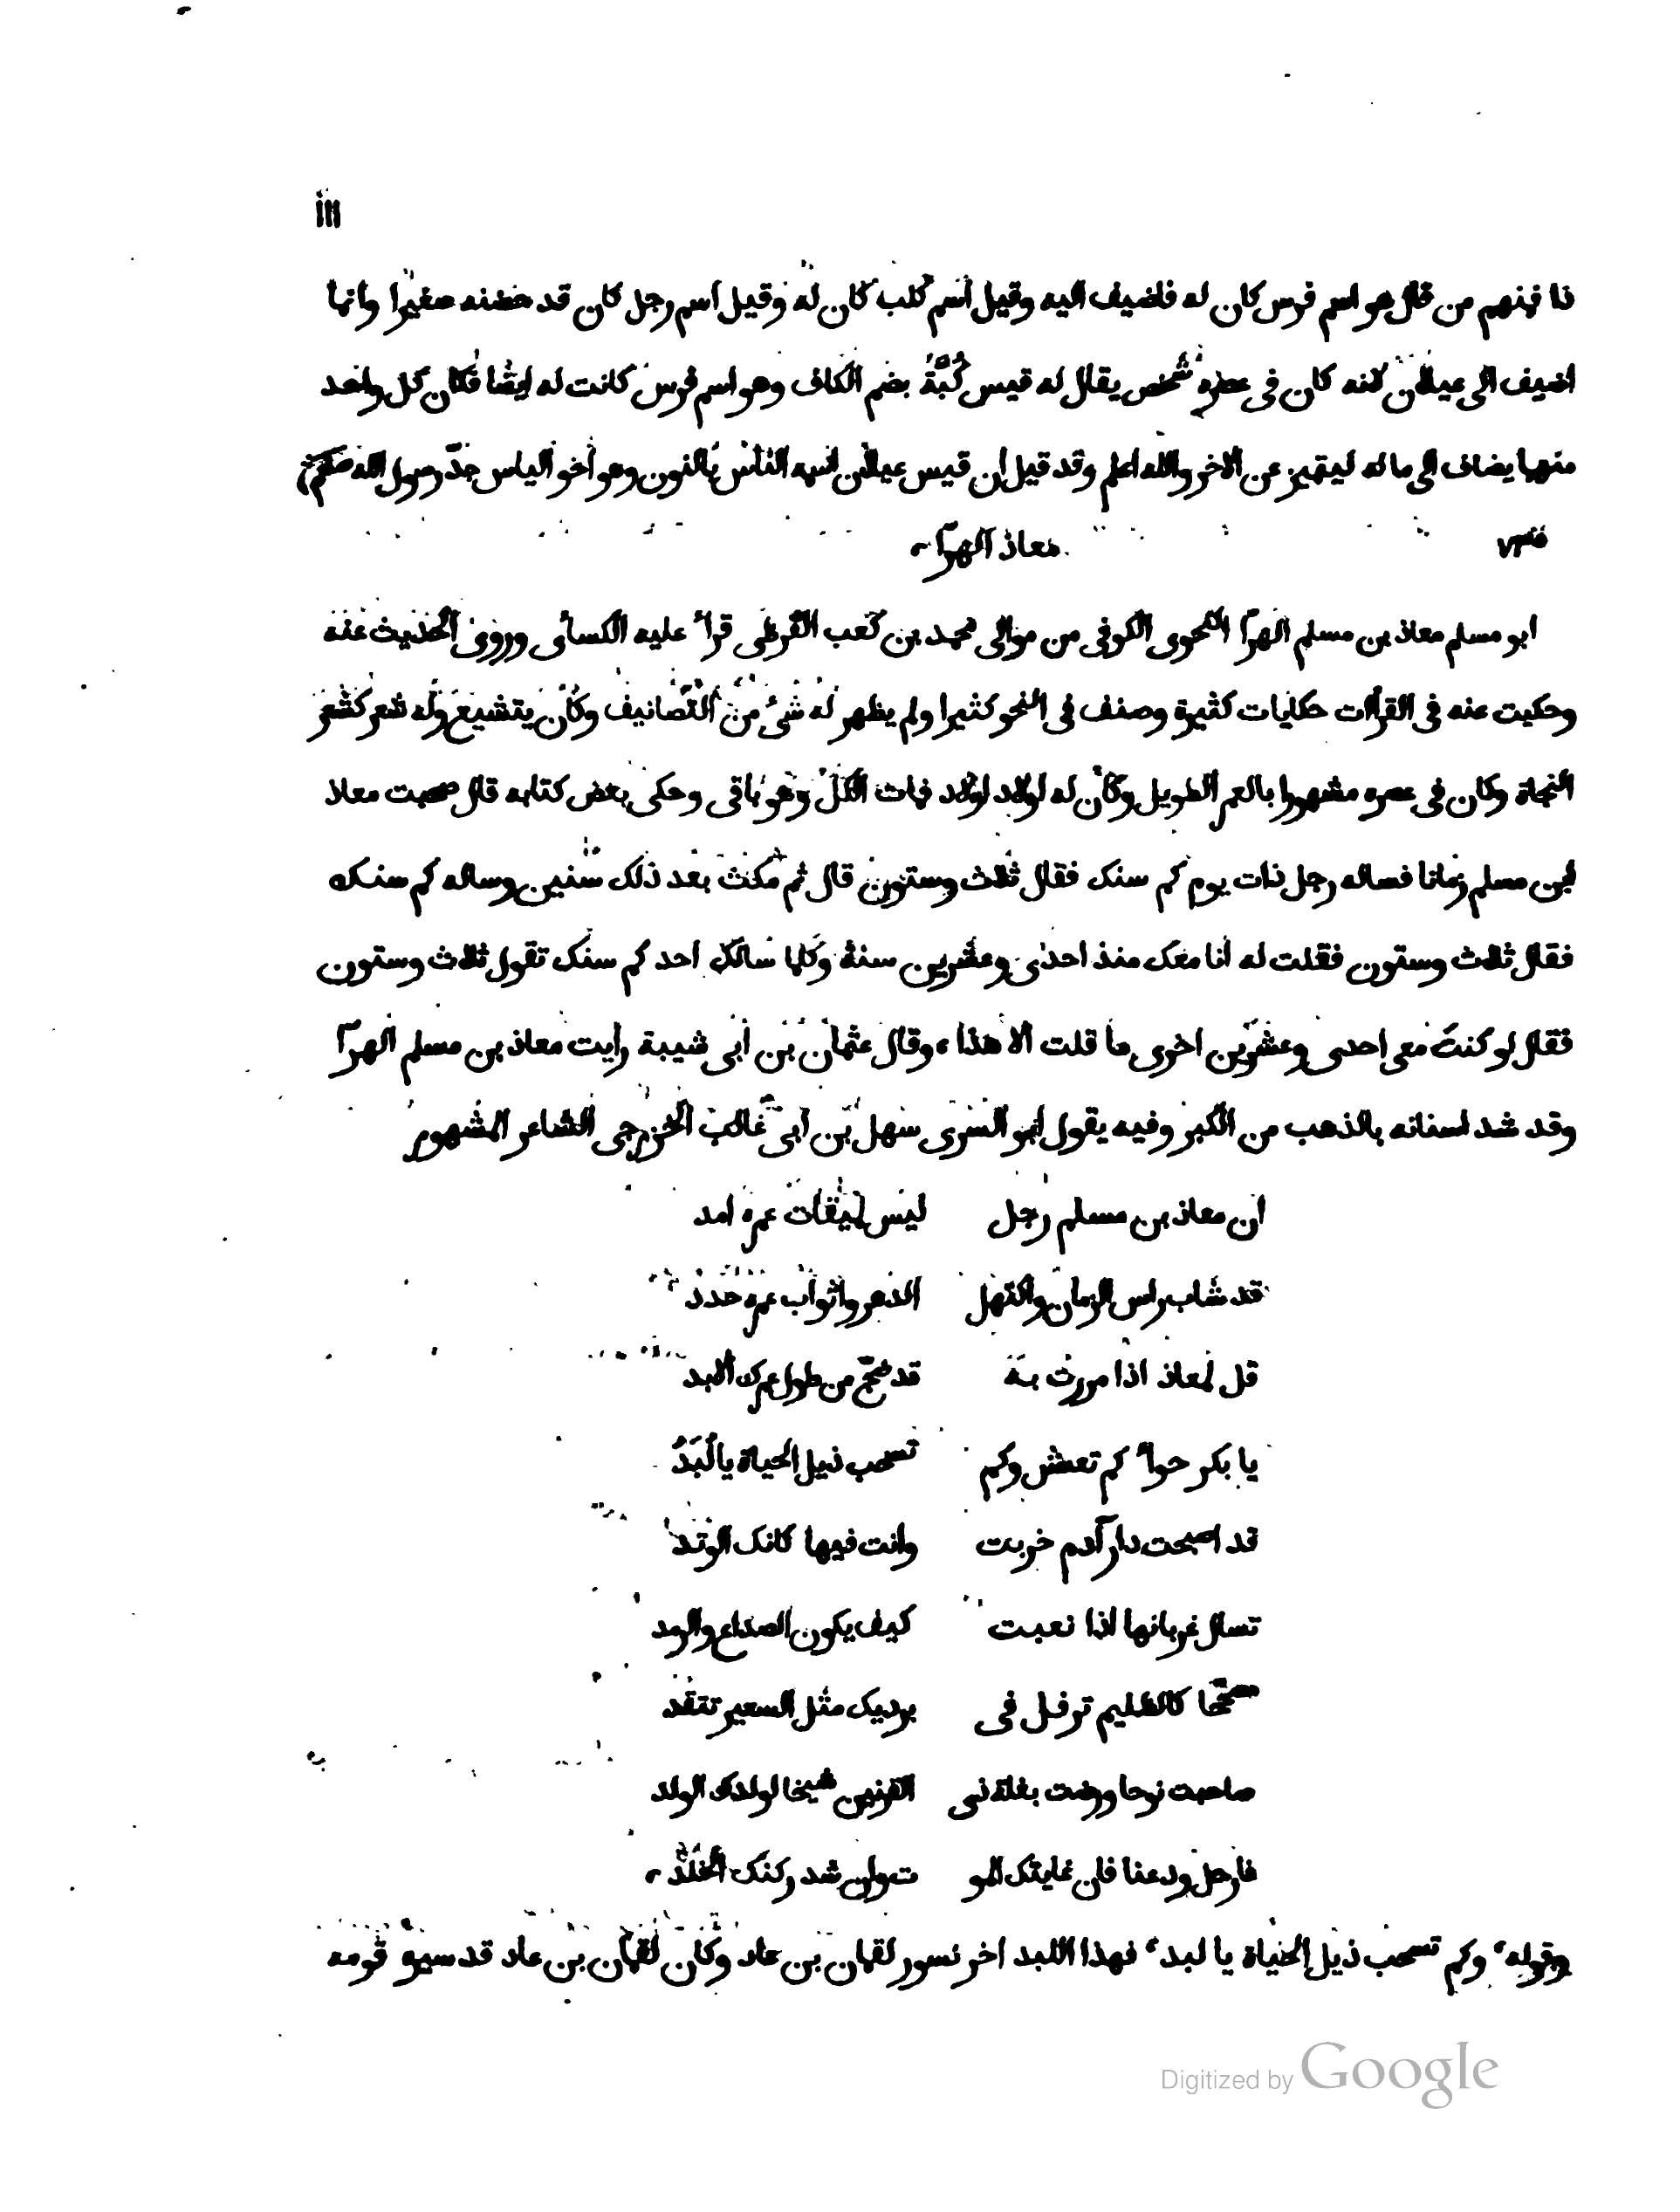 ١١١
نا فمنهم من قال هو اسم فرس كان له فاضيف اليه وقيل اسم كلب كان له وقيل اسم رجل كان قد حضنه صغيرا وانما
اضيف الى عيلان لانه كان فى عصره شخص يقال له قيس كُبَّةُ بضم الكاف وهو اسم فرس كانت له ايضا فكان كل واحد
منهما يضاف الى ما له ليتميز عن الاخر والله اعلم وقد قيل ان قيس عيلان اسمه الناس بالنون وهو اخو الياس جدّ رسول الله صلعم
معاذ الهرآ،
ابو مسلم معاذ بن مسلم الهرآ النحوى الكوفى من موالى محمد بن كعب القرظى قرأ عليه الكسائى وروى الحديث عنه
وحكيت عنه فى القرآات حكايات كثيرة وصنف فى النحو كثيرا ولم يظهر له شئ من التصانيف وكان يتشيع وله شعر كشعر
النحاة وكان فى عصره مشهورا بالعمر الطويل وكان له اولاد اولاد فمات الكل وهو باقى وحكى بعض كتابه قال صحبت معاذ
ابن مسلم زمانا فساله رجل ذات يوم كم سنك فقال ثلاث وستون قال ثم مكث بعد ذلك سنين وساله كم سنك
فقال ثلاث وستون فقلت له انا معك منذ احدى وعشرين سنة وكلما سالك احد كم سنك تقول ثلاث وستون
فقال لو كنت معى احدى وعشرين اخرى ما قلت الا هذا، وقال عثمان بن ابى شيبة رايت معاذ بن مسلم الهرآ
وقد شد اسنانه بالذهب من الكبر وفيه يقول ابو السرى سهل بن ابى غالب الخزرجى الشاعر المشهور
ان معاذ بن مسلم رجل ليس لميقات عمره امد
قد شاب راس الزمان واكتهل الدهر واثواب عمره جدد
قل لمعاذ اذا مررت به قد ضجّ من طول عمرك الابد
يا بكر حوآ كم تعيش وكم تسحب ذيل الحياة يا لُبَدُ
قد اصبحت دار آدم خربت وانت فيها كانك الوتد
تسال غربانها اذا نعبت كيف يكون الصداع والرمد
مصححا كالظليم ترفل فى برديك مثل السعير تتقد
صاحبت نوحا ورضت بغلة ذى القرنين شيخا لولدك الولد
فارحل ودعنا فان غايتك المو ت وان شد ركنك الجلد،
وقوله، وكم تسحب ذيل الحياة يا لبد، فهذا اللبد اخر نسور لقمان بن عاد وكان لقمان بن عاد قد سيره قومه
Digitized by Google